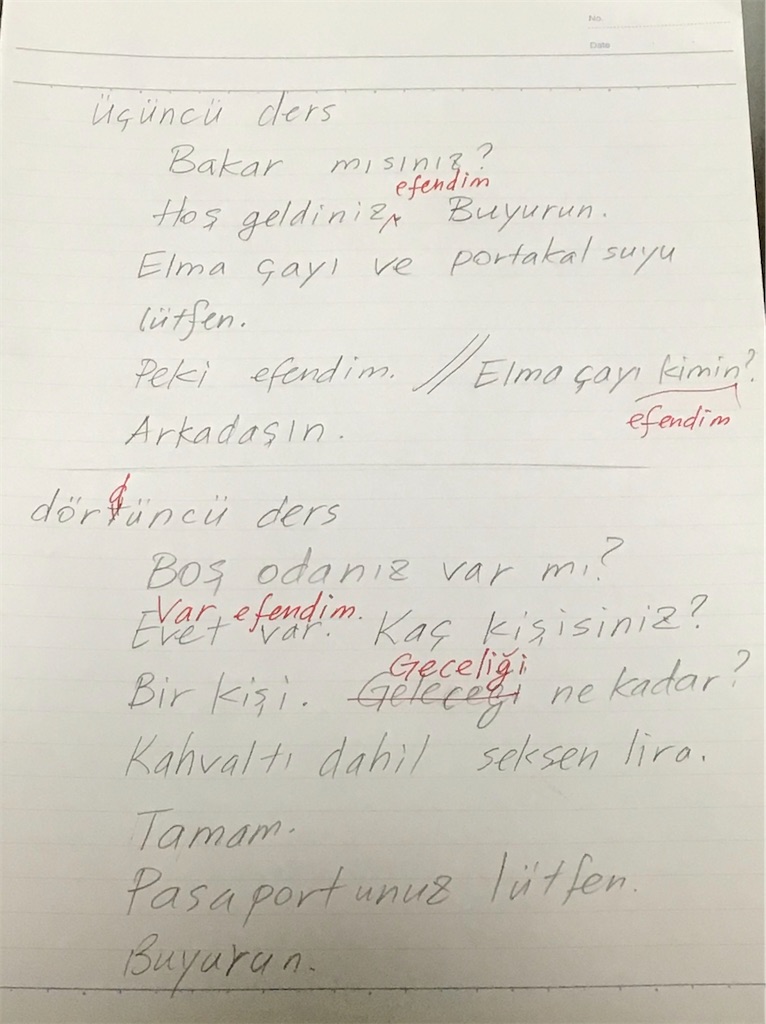 No.
Date
üçüncü ders
Bakar mısınız?
efendim
Hoş geldiniz^ Buyurun.
Elma çayı ve portakal suyu
lütfen.
Peki efendim. // Elma çayı kimin?
efendim
Arkadaşın.
d
dörtüncü ders
Boş odanız var mı?
Var efendim.
Evet var. Kaç kişisiniz?
Geceliği
Bir kişi. Geleceği ne kadar?
Kahvaltı dahil seksen lira.
Tamam.
Pasaportunuz lütfen.
Buyurun.